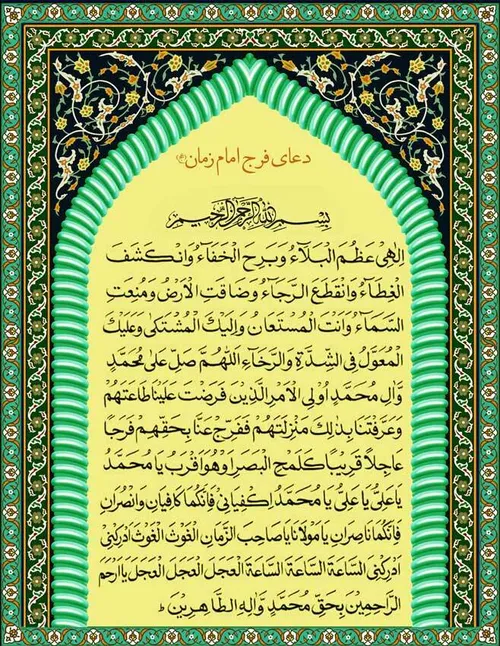 دعای فرج امام زمان (عج)
بِسْمِ اللهِ الرَّحْمنِ الرَّحیمِ
اِلٰهی عَظُمَ الْبَلآءُ وَبَرِحَ الْخَفآءُ وَانْکَشَفَ
الْغِطآءُ وَانْقَطَعَ الرَّجآءُ وَضاقَتِ الْاَرْضُ وَمُنِعَتِ
السَّمآءُ وَاَنْتَ الْمُسْتَعانُ وَاِلَیْكَ الْمُشْتَکیٰ وَعَلَیْكَ
الْمُعَوَّلُ فِی الشِّدَّةِ وَالرَّخآءِ اَللّٰهُمَّ صَلِّ عَلیٰ مُحَمَّدٍ
وَآلِ مُحَمَّدٍ اُولِی الْاَمْرِ الَّذینَ فَرَضْتَ عَلَیْنا طاعَتَهُمْ
وَعَرَّفْتَنا بِذٰلِكَ مَنْزِلَتَهُمْ فَفَرِّجْ عَنّا بِحَقِّهِمْ فَرَجاً
عاجِلاً قَریباً کَلَمْحِ الْبَصَرِ اَوْ هُوَ اَقْرَبُ یا مُحَمَّدُ
یا عَلِیُّ یا عَلِیُّ یا مُحَمَّدُ اِکْفِیانی فَاِنَّکُما کافِیانِ وَانْصُرانی
فَاِنَّکُما ناصِرانِ یا مَوْلانا یا صاحِبَ الزَّمانِ الْغَوْثَ الْغَوْثَ اَدْرِکْنی
اَدْرِکْنی السّاعَةَ السّاعَةَ السّاعَةَ الْعَجَلَ الْعَجَلَ الْعَجَلَ یا اَرْحَمَ
الرّاحِمینَ بِحَقِّ مُحَمَّدٍ وَآلِهِ الطّاهِرینَ